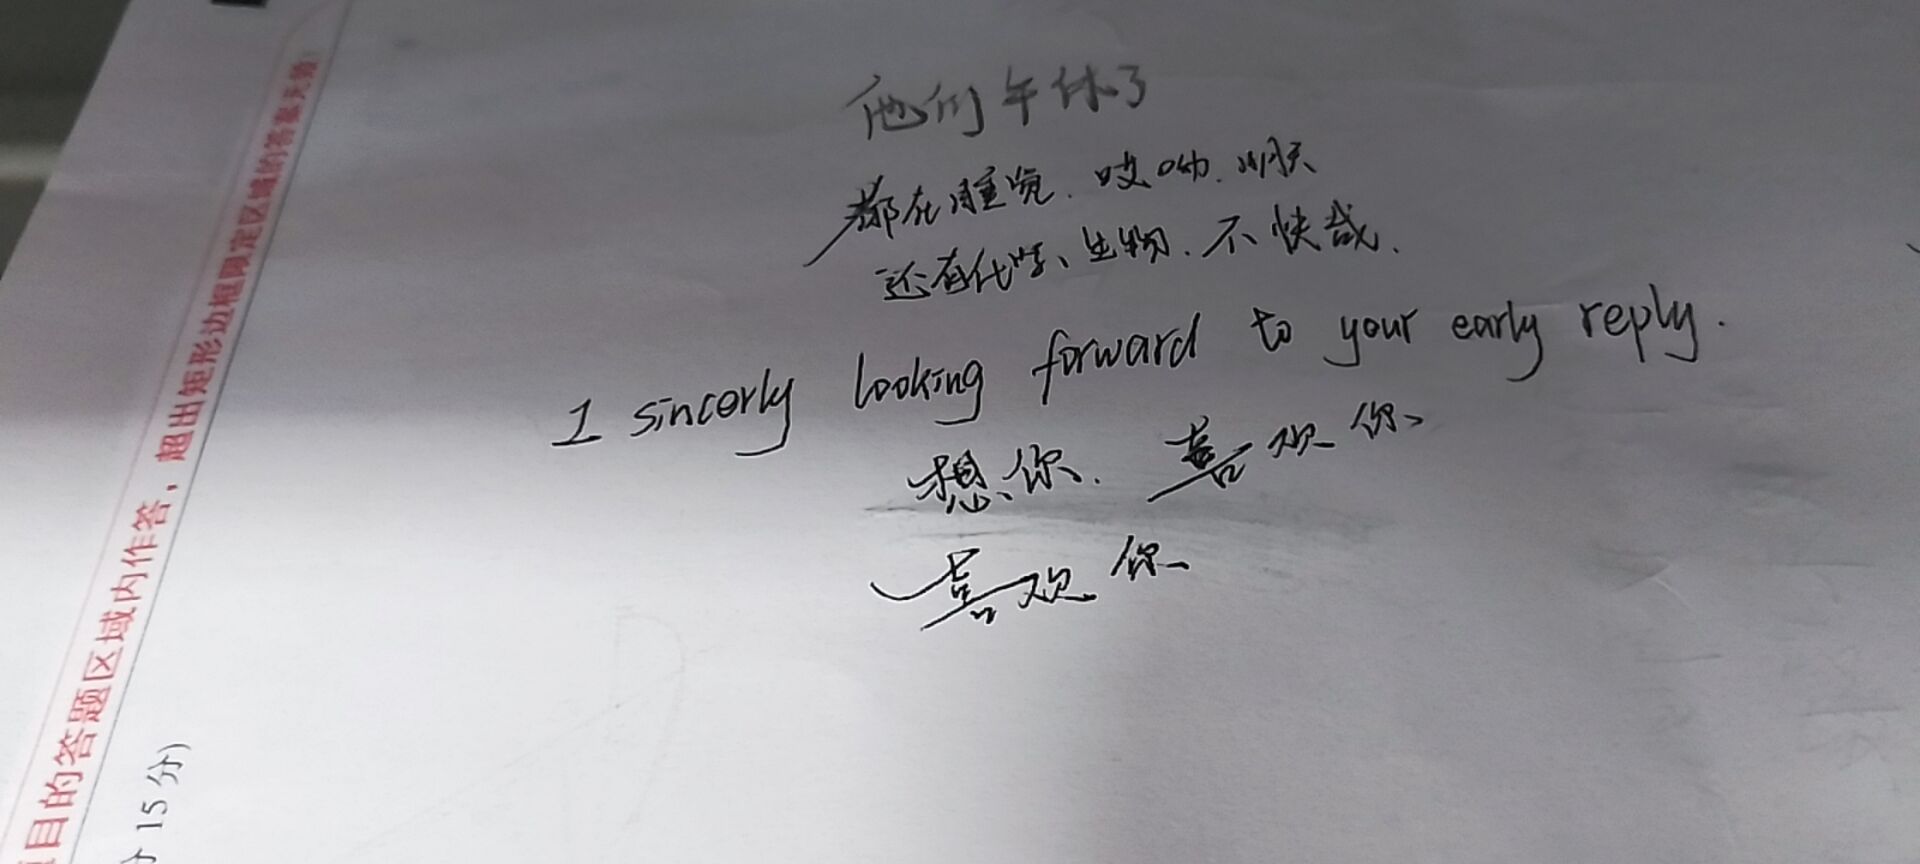 他们午休了
都在睡觉.哎呦.明天
还有化学、生物.不快哉.
I sincerly looking forward to your early reply.
想你. 喜欢你
喜欢你
题目的答题区域内作答，超出矩形边框限定区域的答案无效
15分)